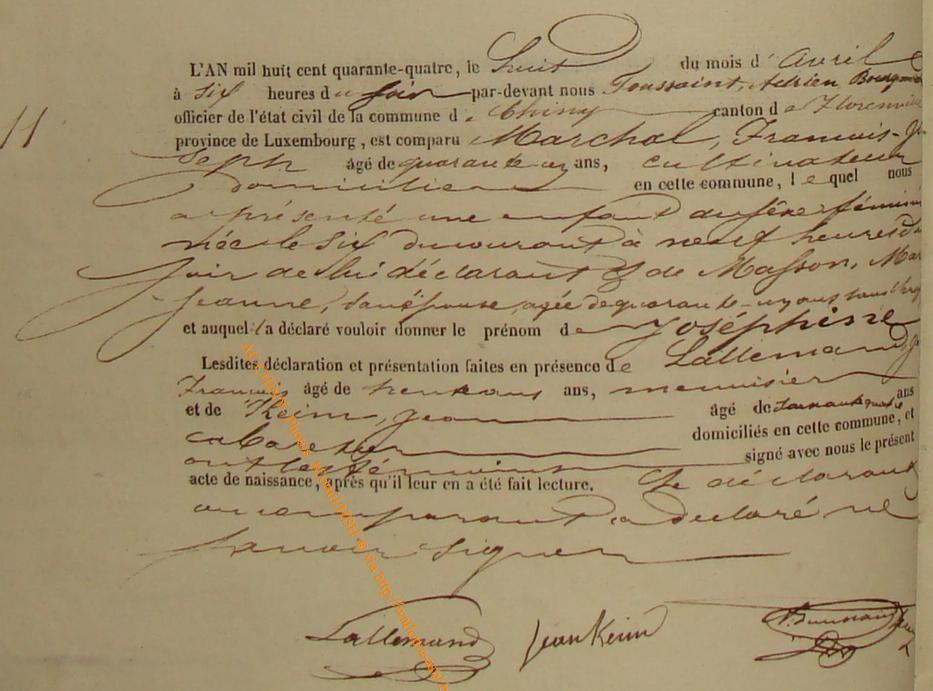 L'AN mil huit cent quarante-quatre, le huit du mois d' Avril
à Six heures du Soir par-devant nous Toussaint, Adrien
officier de l'état civil de la commune de Chiny canton de
province de Luxembourg, est comparu Marchal, François-Jo
seph âgé de quarante un ans, cultivateur
domicilié en cette commune, lequel nous
a présenté une enfant du sexe
née le Six du courant à neuf heures du
soir de lui déclarant & de Masson,
Jeanne, son épouse, agée de quarante-un ans
et auquel il a déclaré vouloir donner le prénom de Joséphine
Lesdites déclaration et présentation faites en présence de Lallemand
François âgé de trente ans, menuisier
11
et de Keim, Jean âgé de ans
cabaretier domiciliés en cette commune, et
ont les témoins signé avec nous le présent
acte de naissance, après qu'il leur en a été fait lecture. Le déclarant
comparant a declaré ne
savoir signer
Lallemand Jean Keim